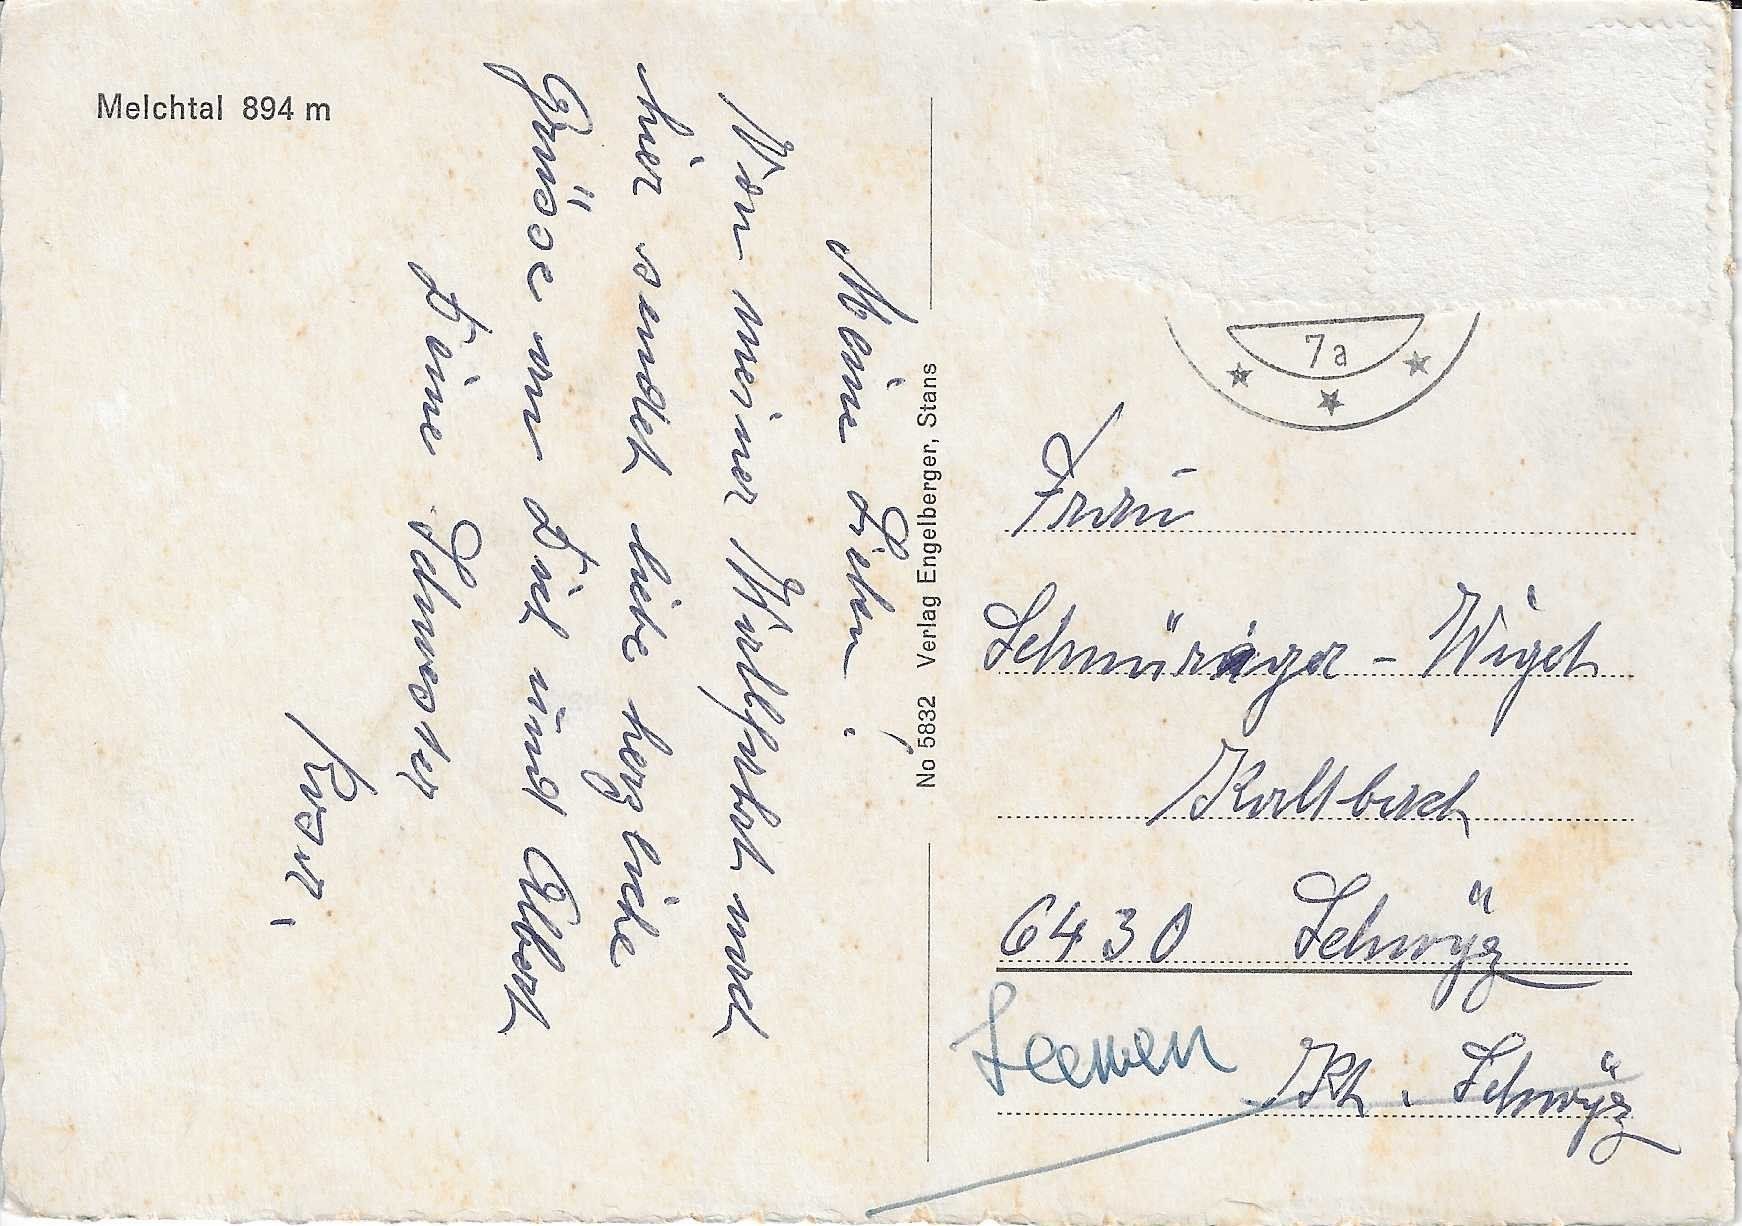 Melchtal 894 m
Meine Lieben!
Von meiner Wallfahrt nach
hier sendet liebe herzliche
Grüsse an Dich und Albert
Deine Schwester
Rosa.
No 5832 Verlag Engelberger, Stans
7a
Frau
Schnüriger - Wiget
Kaltbach
6430 Schwÿz
Seewen
Kt. Schwÿz